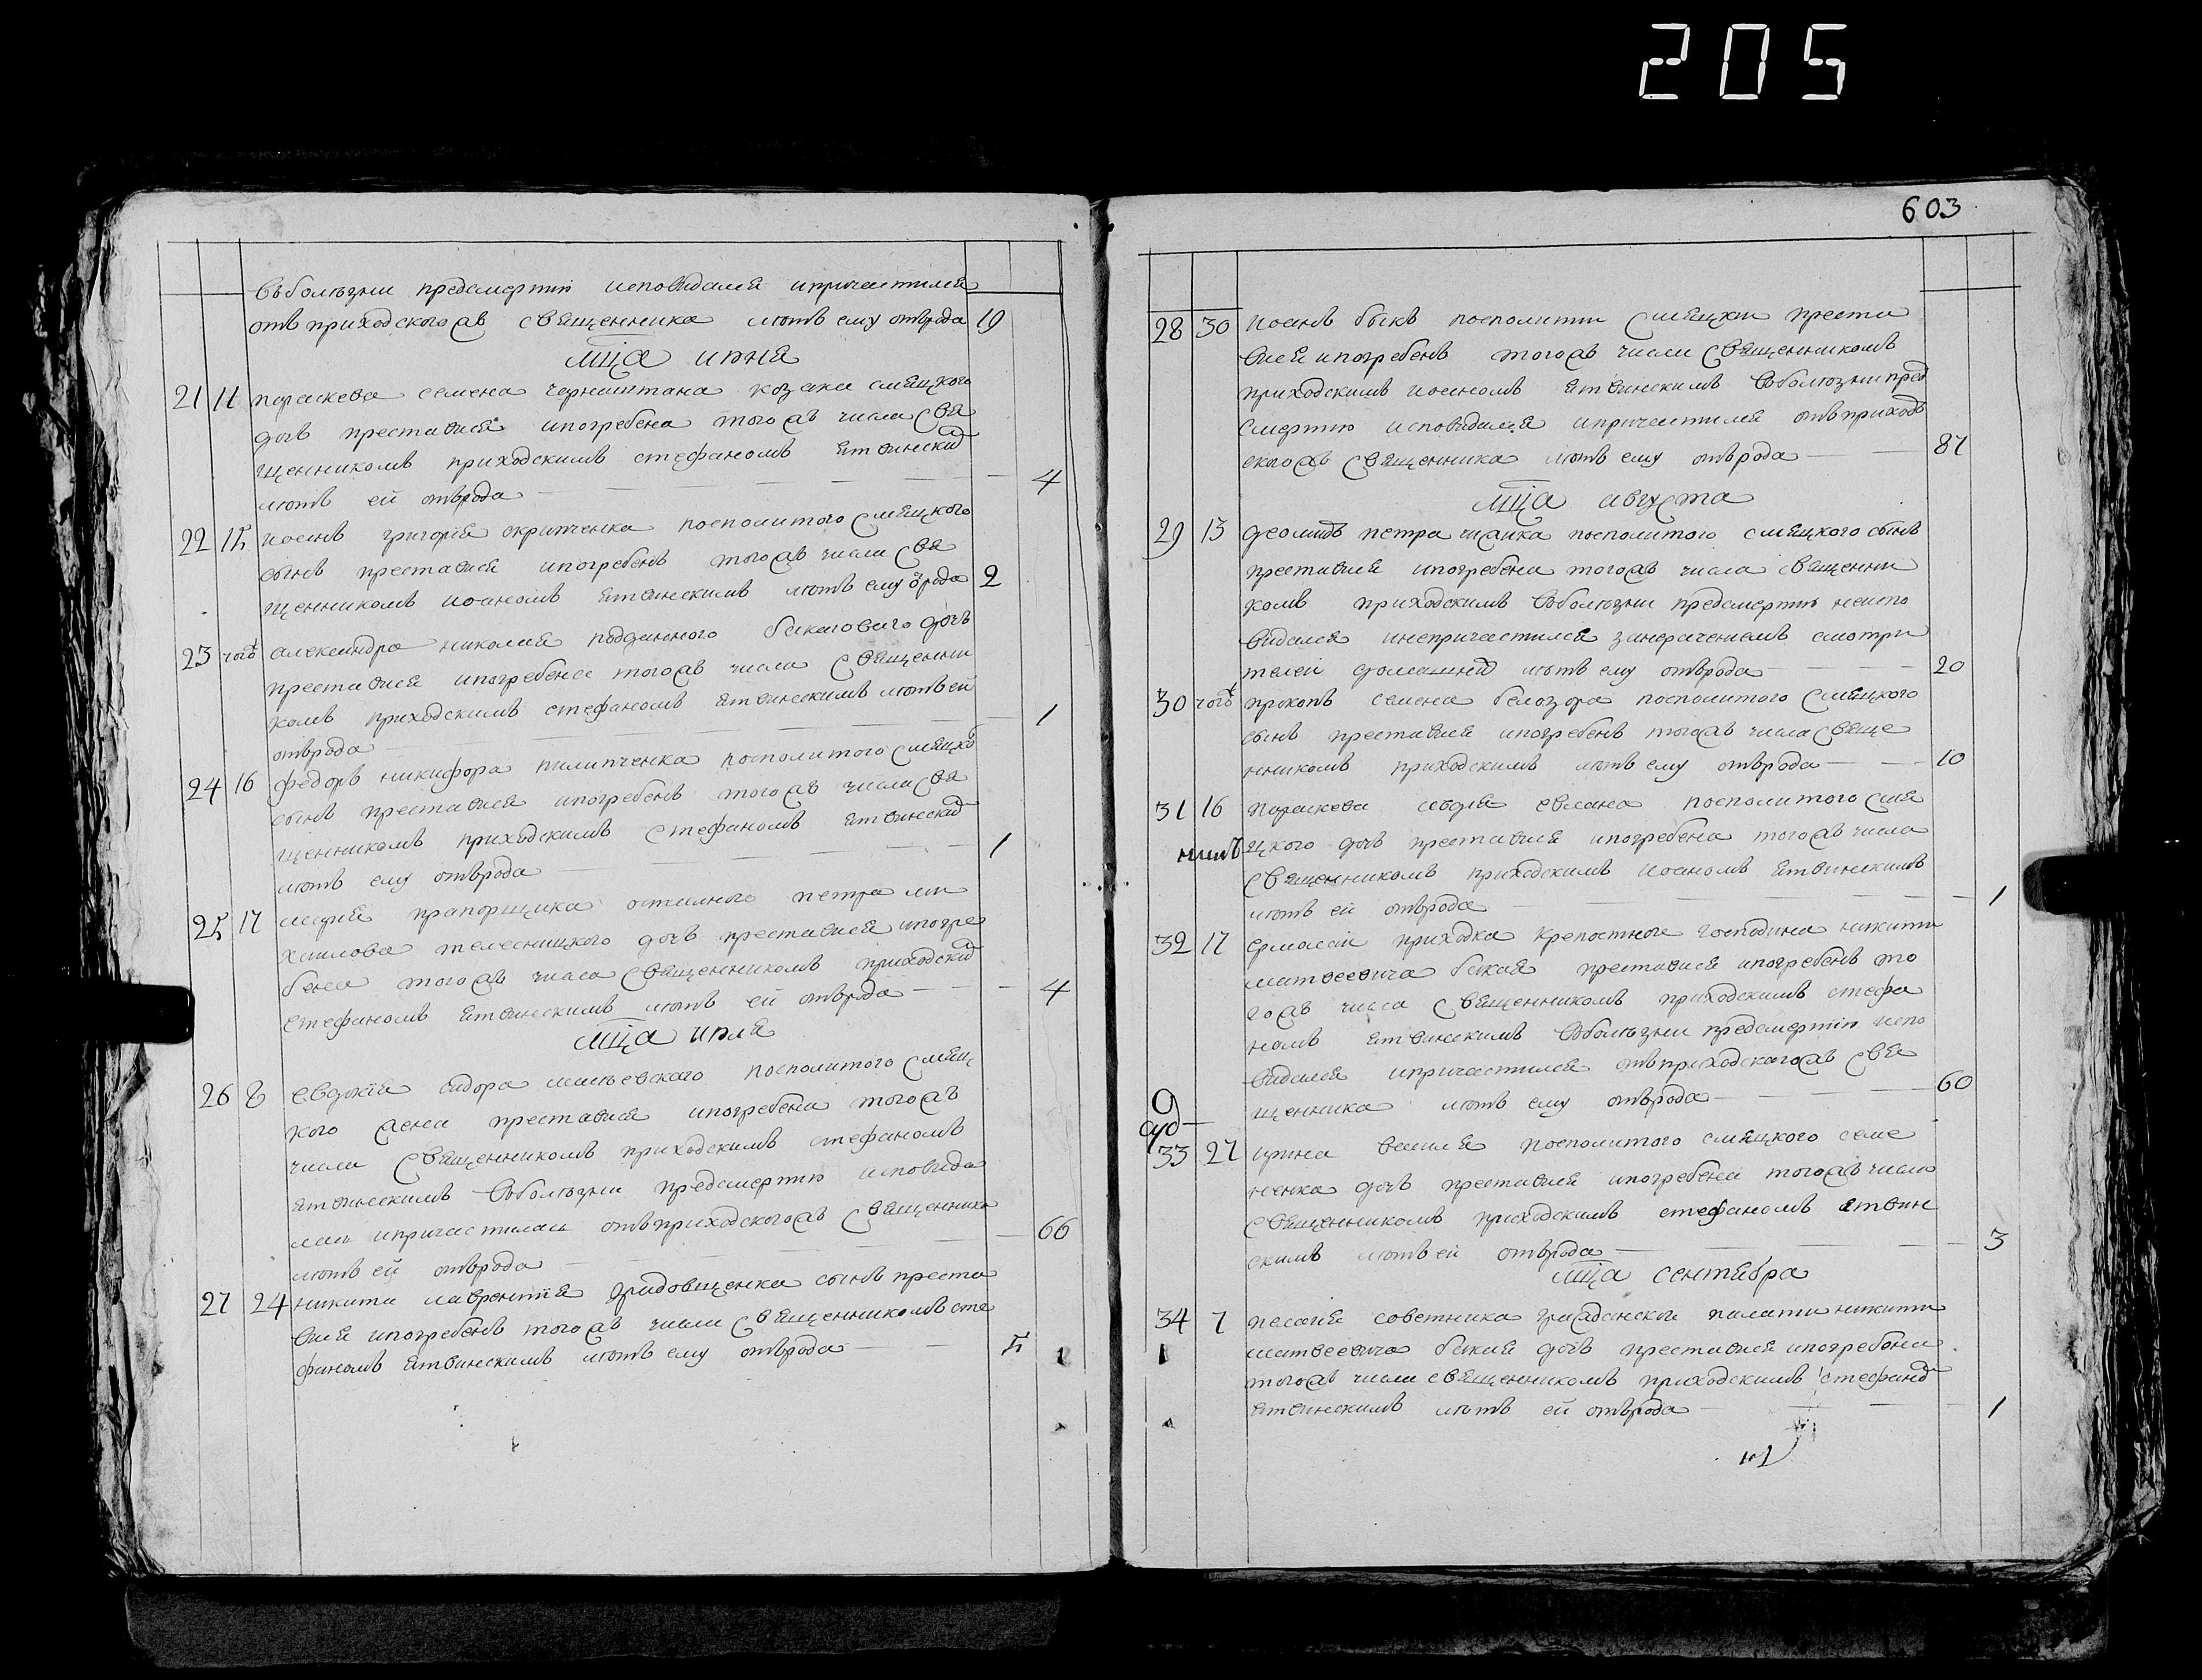 205
въболѣзни предсмертїи исповѣдался ипричастился
отъ приходского ж священника лѣтъ ему отърода 19
мца июня
21 11 параскева семена черништана козака смяцкого
дочь преставися ипогребена того ж числа свя
щенникомъ приходскимъ стефаномъ ятвинским
лѣтъ ей отърода 4
22 15 иоанъ григорїя скрипченка посполитого смяцкого
сынъ преставися ипогребенъ того ж числа свя
щенникомъ иоаномъ ятвинскимъ лѣтъ ему ѿрода 2
23 тогож александра николая подданного бакаговаго дочь
преставися ипогребена того ж числа священни
комъ приходскимъ стефаномъ ятвинскимъ лѣтъ ей
отърода 1
24 16 федоръ никифора пилипченка посполитого смяцко
сынъ преставися ипогребенъ того ж числа свя
щенникомъ приходскимъ стефаномъ ятвинским
лѣтъ ему отърода 1
25 17 марїя прапорщика петра ми
хаилова телесницкого дочь преставися ипогре
бена того ж числа священникомъ приходским
стефаномъ ятвинскимъ лѣтъ ей отърода 4
мца июля
26 8 евдокїя сидора посполитого смяц
кого жена преставися ипогребена того ж
числа священникомъ приходскимъ стефаномъ
ятвинскимъ въболѣзни предсмертїю исповѣда
лась ипричастилась отъ приходского ж священника
лѣтъ ей отърода 66
27 24 никита лаврентїя гридовщенка сынъ преста
вися ипогребенъ того ж числа священникомъ сте
фаномъ ятвинскимъ лѣтъ ему отърода 5
603
28 30 иоанъ быкъ посполити смяцки преста
вися ипогребенъ того ж числа священникомъ
приходскимъ иоаномъ ятвинскимъ въболѣзни пред
смертїю исповѣдался ипричастился отъ приход
ского ж священника лѣтъ ему отърода 87
мца августа
29 13 петра посполитого смяцкого сынъ
преставися ипогребена того ж числа священни
комъ приходскимъ въболѣзни предсмертїю неиспо
вѣдался инепричастился смотри
телей домашней лѣтъ ему отърода 20
30 тогож прокопъ семена белозора посполитого смяцкого
сынъ преставися ипогребенъ того ж числа свяще
нникомъ приходскимъ лѣтъ ему отърода 10
31 16 параскева посполитого смя
цкого дочь преставися ипогребена того ж числа
священникомъ приходскимъ иоаномъ ятвинскимъ
лѣтъ ей отърода 1
32 17 ермолай приходка крепостного господина никити
матвеевича бакая преставися ипогребенъ то
го ж числа священникомъ приходскимъ стефа
номъ ятвинскимъ въболѣзни предсмертїи испо
вѣдался ипричастился отъ приходского ж свя
щенника лѣтъ ему отърода 60
33 27 ирина василя посполитого смяцкого семе
ненка дочь преставися ипогребена того ж числа
священникомъ приходскимъ стефаномъ ятвин
скимъ лѣтъ ей отърода 3
мца сентября
34 7 пелагїя советника гражданской палати никити
матвеевича бакая дочь преставися ипогребена
того ж числа священникомъ приходскимъ стефаном
ятвинскимъ лѣтъ ей отърода 1